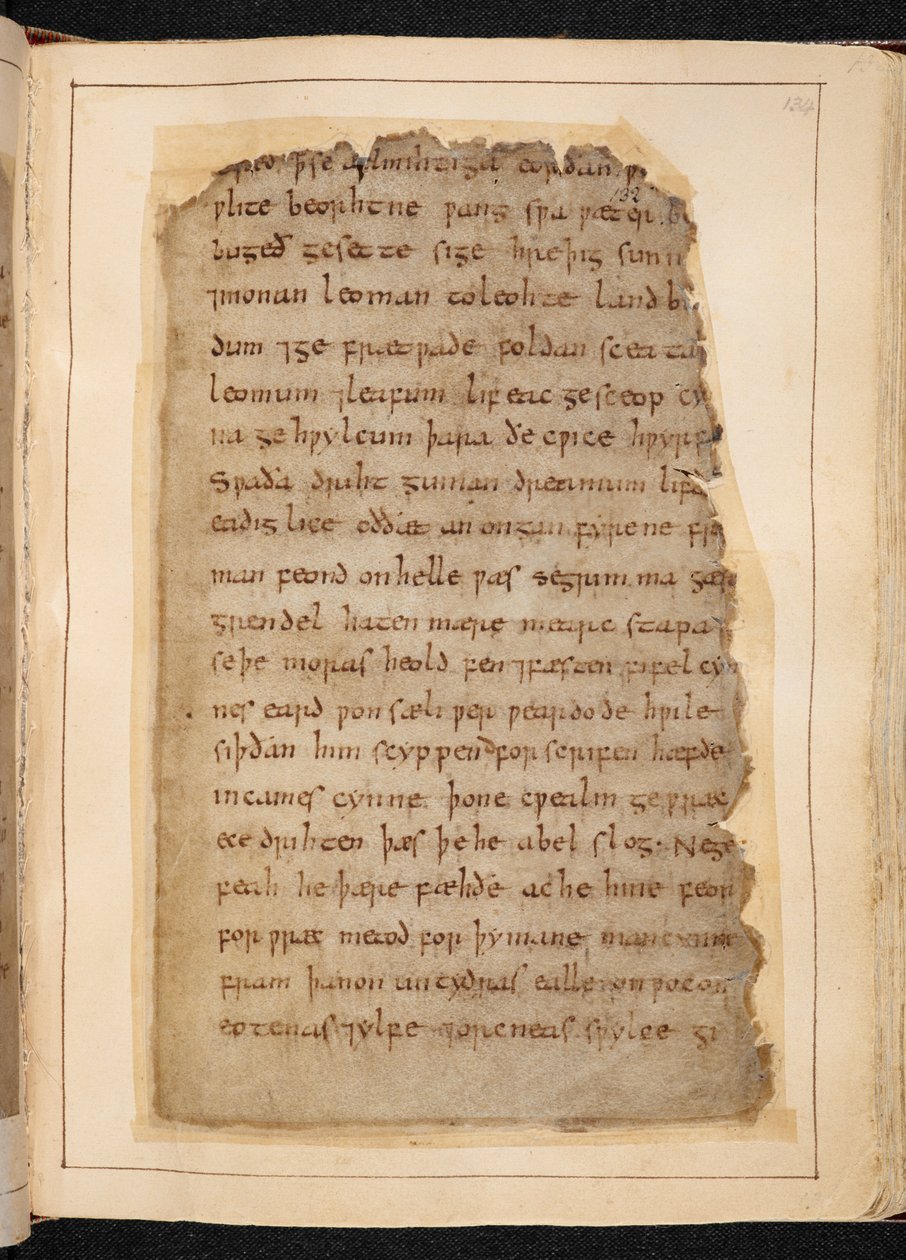 134
þ se ælmihtiga eorðan
132
ƿlite beorhtne ƿang sƿa ƿæter
bugeð gesette sige hreþig sunn
⁊monan leoman toleohte land b
dum ⁊ge frætƿade foldan sceata
leomum ⁊leafum lif eac gesceop cy
na ge hƿylcum þara ðe cƿice hƿyrf
Sƿa ða driht guman dreamum lifd
eadig lice oððæt an ongan fyrene fre
man feond onhelle ƿæs se grimma gæs
grendel haten mære mearc stapa
seþe moras heold fen ⁊fæsten fifel cyn
nes eard ƿon sæli ƿer ƿeardode hƿile
siþðan him scyppend forscrifen hæfde
incames cynne þone cƿealm geƿræc
ece drihten þæs þehe abel slog· Nege
feah he þære fæhðe ac he hine feor
for ƿræc metod for þy mane mancynne
fram þanon untydras ealle onƿocon
eotenas ⁊ylfe ⁊orcneas sƿylce gi